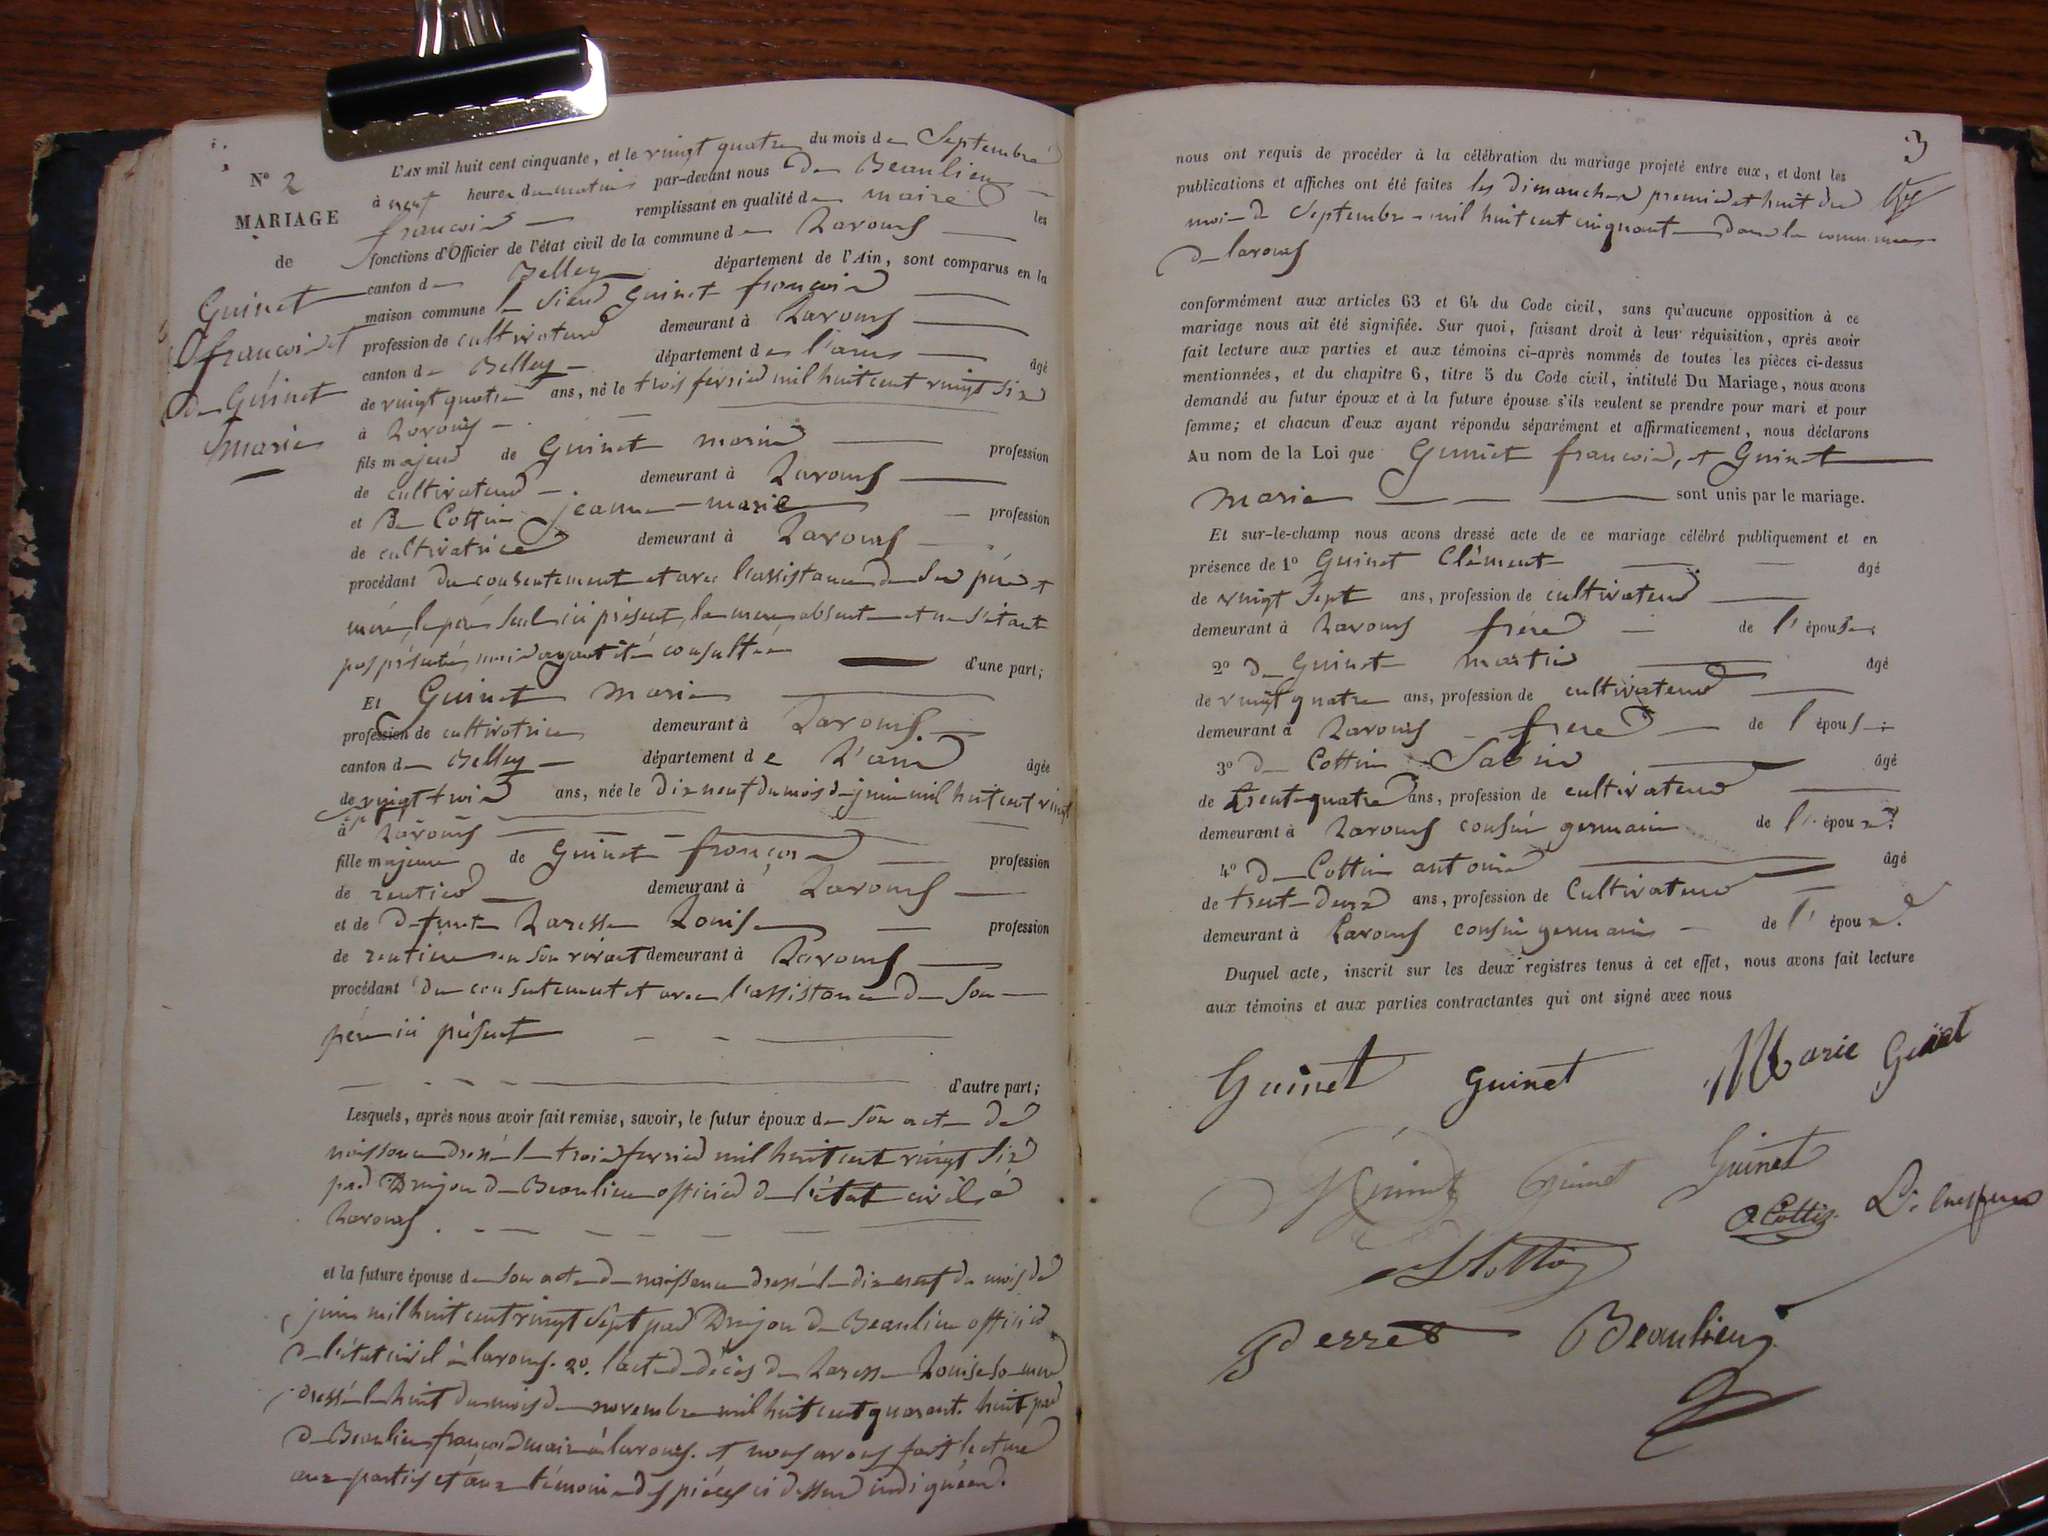 N° 2
MARIAGE
de
Guinet
françois et
de Guinet
marie
L'AN mil huit cent cinquante, et le vingt quatre du mois de Septembre
à neuf heures du matin par-devant nous de Beaulieu
françois remplissant en qualité de maire les
fonctions d'Officier de l'état civil de la commune de Lavours
canton de Belley département de l'Ain, sont comparus en la
maison commune le Sieur Guinet françois
profession de cultivateur demeurant à Lavours
canton de Belley département de l'ain âgé
de vingt quatre ans, né le trois fevrier mil huit cent vingt six
à Lavours
fils majeur de Guinet marin profession
de cultivateur demeurant à Lavours
et De Cottin jeanne-marie profession
de cultivatrice demeurant à Lavours
procédant du consentement et avec l'assistance de Ses père et
mère, le père Seul ici présent, la mere absente et ne s'étant
pas présentée, mais ayant été consultée d'une part;
Et Guinet marie
profession de cultivatrice demeurant à Lavours
canton de Belley département de L'ain âgée
de vingt trois ans, née le dix neuf du mois de juin mil huit cent vingt
sept
à Lavours
fille majeure de Guinet françois profession
de rentier demeurant à Lavours
et de defunte Louise profession
de rentiere en Son vivant demeurant à Lavours
procédant du consentement et avec l'assistance de Son
père ici présent
d'autre part;
Lesquels, après nous avoir fait remise, savoir, le futur époux de Son acte de
naissance dressé le trois fevrier mil huit cent vingt Six
par Dujou de Beaulieu officier de l'état civil à
Lavours.
et la future épouse de Son acte de naissance dressé le dix neuf du mois de
juin mil huit cent vingt Sept par Dujou de Beaulieu officier
de l'état civil à lavours. 2°. l'acte de décès de Louise Sa mere
dressé le huit du mois de novembre mil huit cent quarante huit par
de Beaulieu françois maire à lavours. et nous avons fait lecture
aux parties et aux témoins des pièces ci dessus indiquées.
3
nous ont requis de procéder à la célébration du mariage projeté entre eux, et dont les
publications et affiches ont été faites les dimanches premier et huit du
mois de Septembre mil huit cent cinquante dans la commune
de lavours
conformément aux articles 63 et 64 du Code civil, sans qu'aucune opposition à ce
mariage nous ait été signifiée. Sur quoi, faisant droit à leur réquisition, après avoir
fait lecture aux parties et aux témoins ci-après nommés de toutes les pièces ci-dessus
mentionnées, et du chapitre 6, titre 5 du Code civil, intitulé Du Mariage, nous avons
demandé au futur époux et à la future épouse s'ils veulent se prendre pour mari et pour
femme; et chacun d'eux ayant répondu séparément et affirmativement, nous déclarons
Au nom de la Loi que Guinet françois, et Guinet
marie sont unis par le mariage.
Et sur-le-champ nous avons dressé acte de ce mariage célébré publiquement et en
présence de 1° Guinet Clément âgé
de vingt Sept ans, profession de cultivateur
demeurant à Lavours frère de l'épouse
2° de Guinet martin âgé
de vingt quatre ans, profession de cultivateur
demeurant à Lavours frere de l'épouse
3° de Cottin Sabin âgé
de trente quatre ans, profession de cultivateur
demeurant à Lavours cousin germain de l'époux
4° de Cottin antoine âgé
de trente deux ans, profession de Cultivateur
demeurant à Lavours cousin germain de l'époux
Duquel acte, inscrit sur les deux registres tenus à cet effet, nous avons fait lecture
aux témoins et aux parties contractantes qui ont signé avec nous
Guinet guinet Marie Guinet
Guinet Guinet Guinet
Cottin
Cottin
Perret Beaulieu